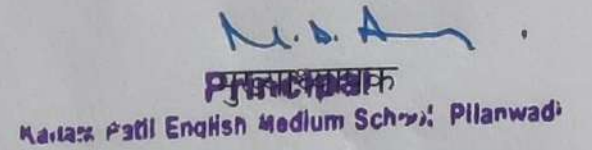 M. D. A
Principal
मुख्याध्यापक
Patil English Medium School Pilanwadi